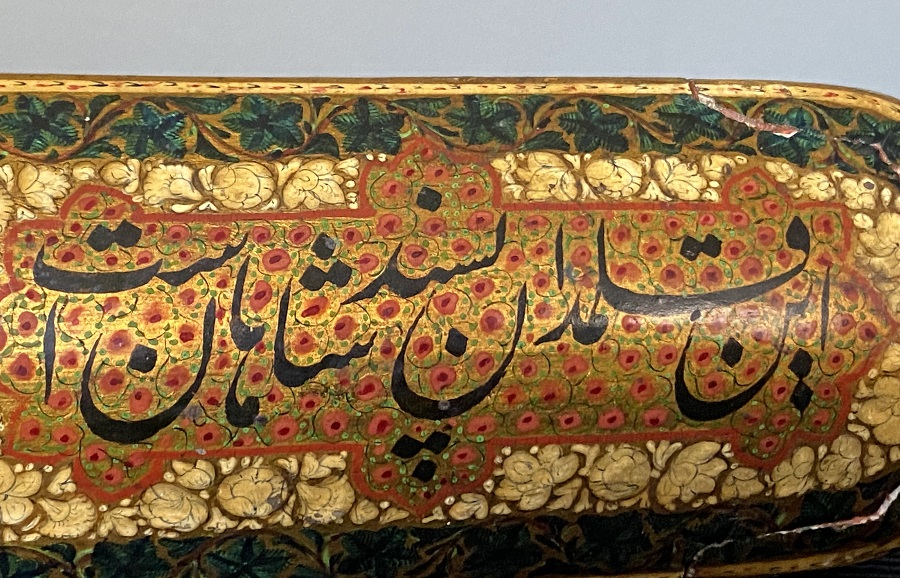 این قلمدان پسند شاهان است